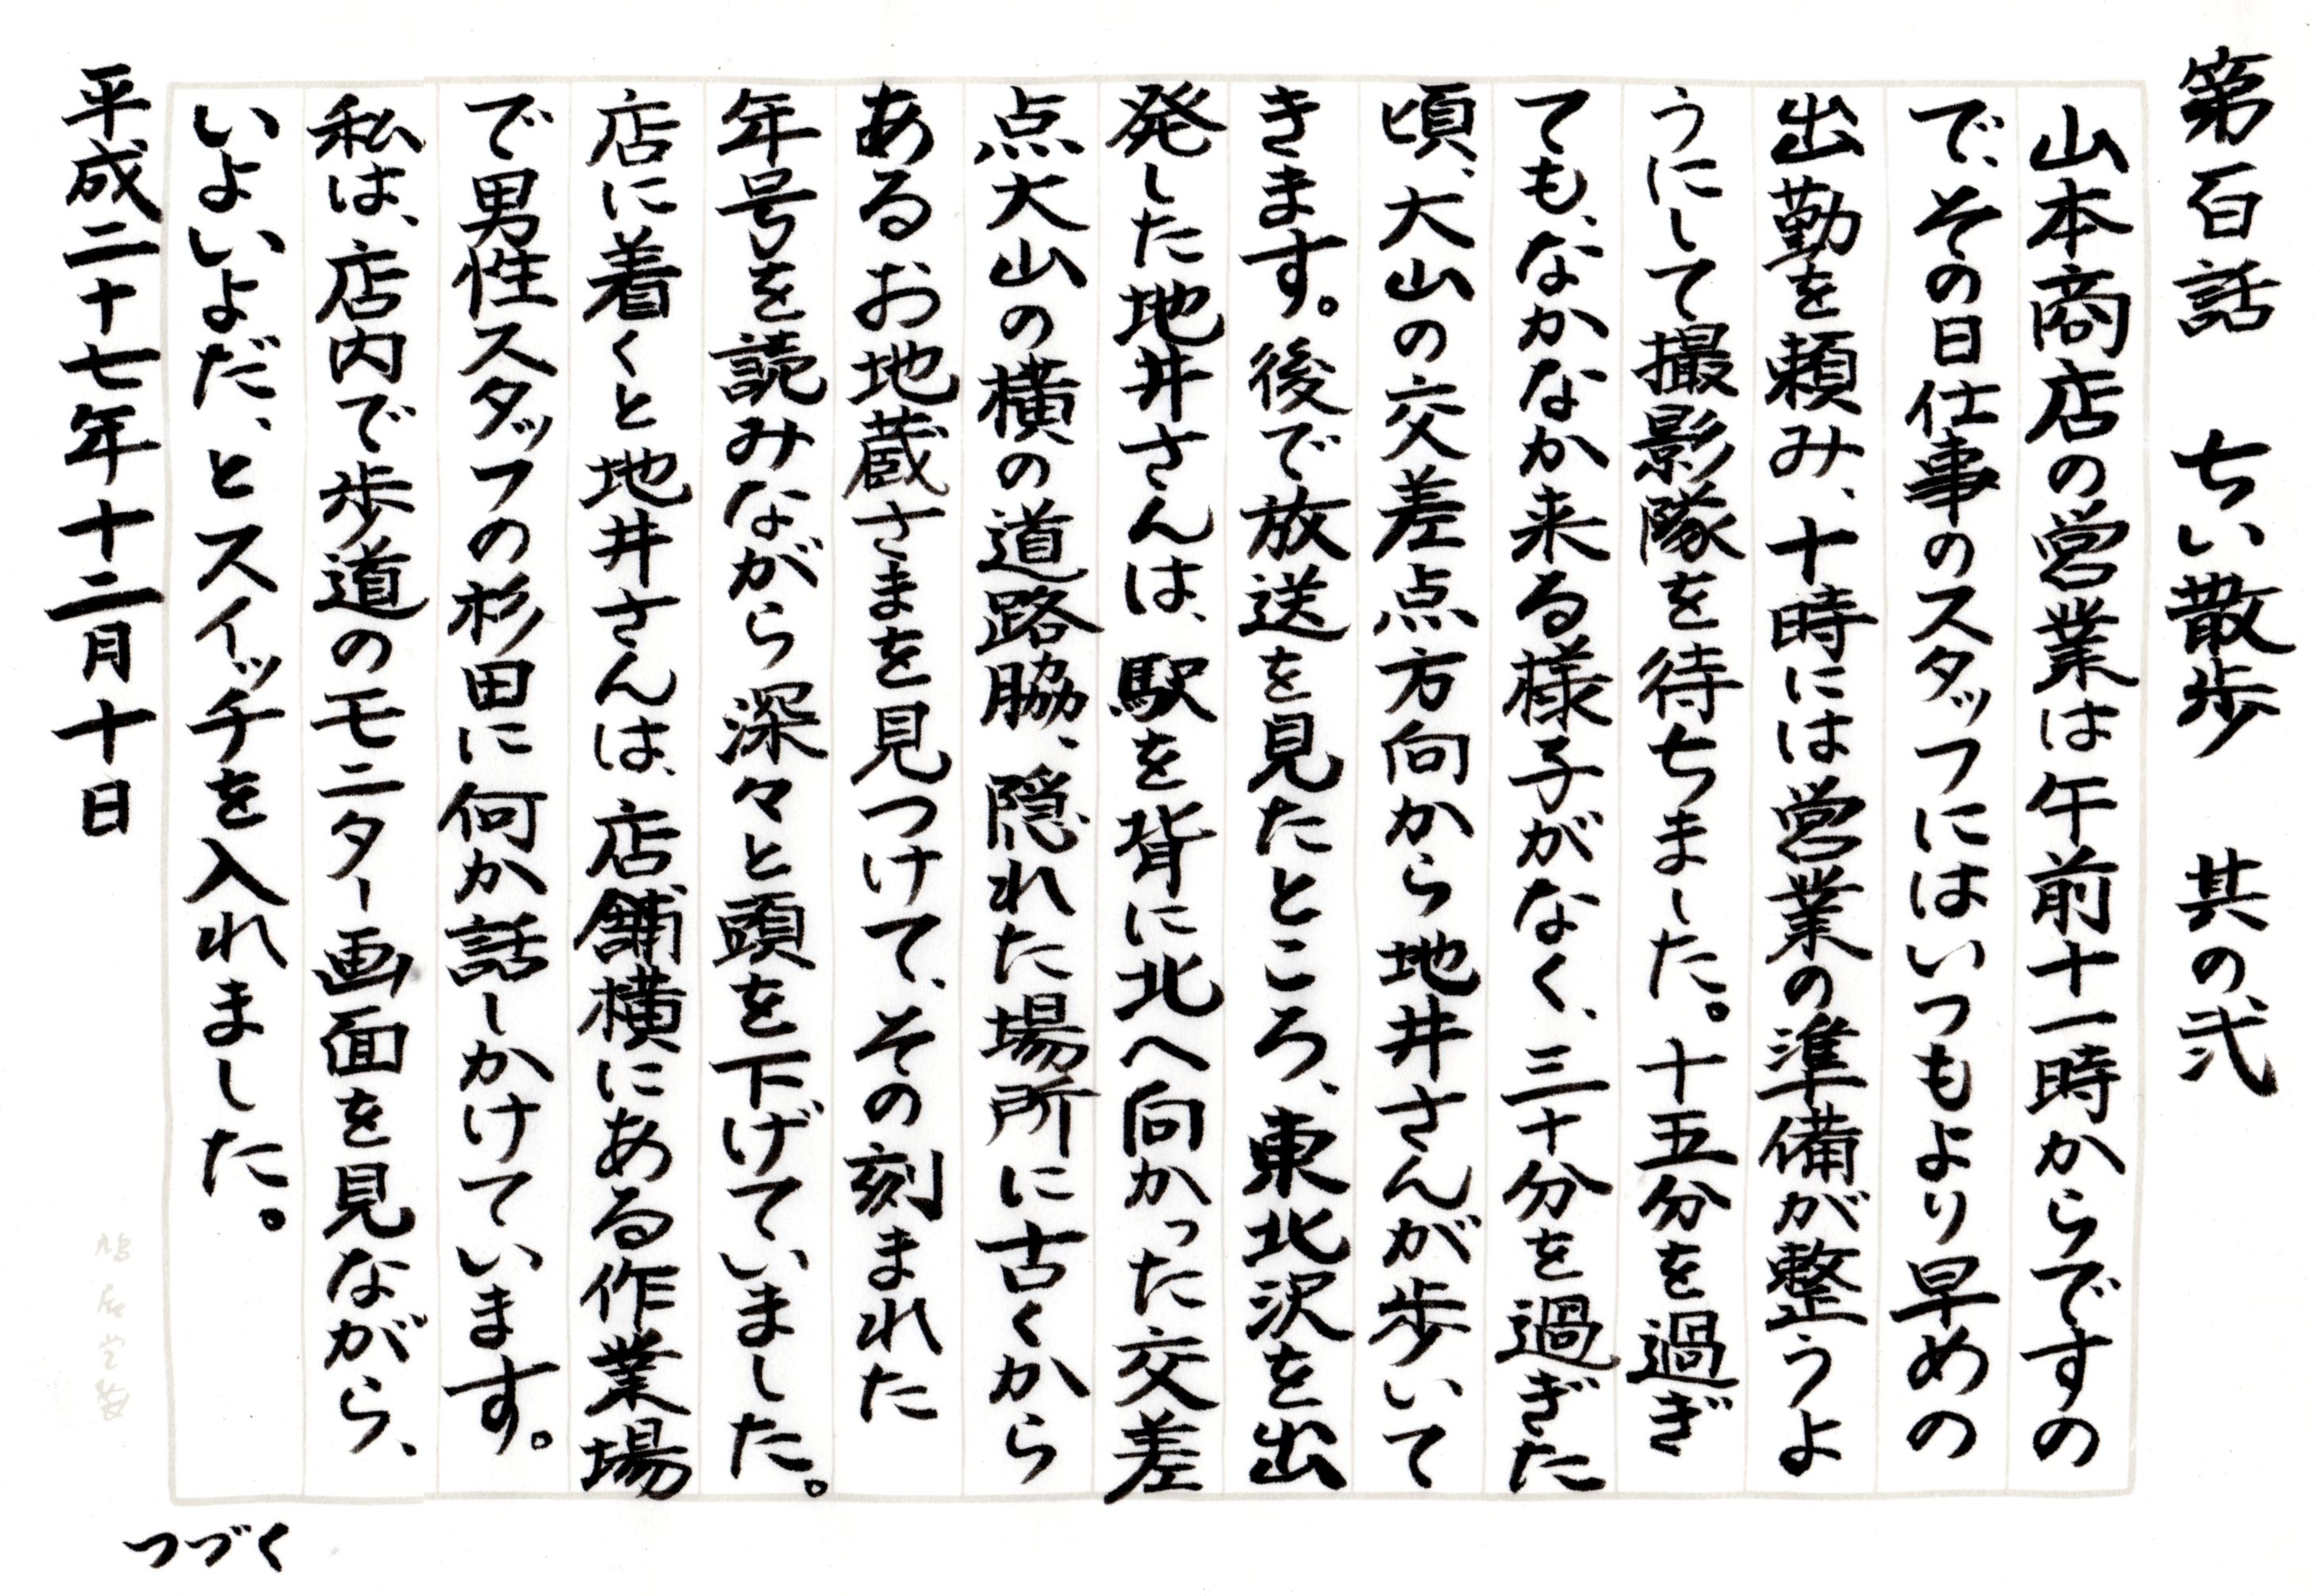 第百話　ちい散歩　其の弐
山本商店の営業は午前十一時からですの
で、その日仕事のスタッフにはいつもより早めの
出勤を頼み、十時には営業の準備が整うよ
うにして撮影隊を待ちました。十五分を過ぎ
ても、なかなか来る様子がなく、三十分を過ぎた
頃、大山の交差点方向から地井さんが歩いて
きます。後で放送を見たところ、東北沢を出
発した地井さんは、駅を背に北へ向かった交差
点大山の横の道路脇、隠れた場所に古くから
あるお地蔵さまを見つけて、その刻まれた
年号を読みながら深々と頭を下げていました。
店に着くと地井さんは、店舗横にある作業場
で男性スタッフの杉田に何か話しかけています。
私は、店内で歩道のモニター画面を見ながら、
いよいよだ、とスイッチを入れました。
平成二十七年十二月十日
つづく
鳩居堂製